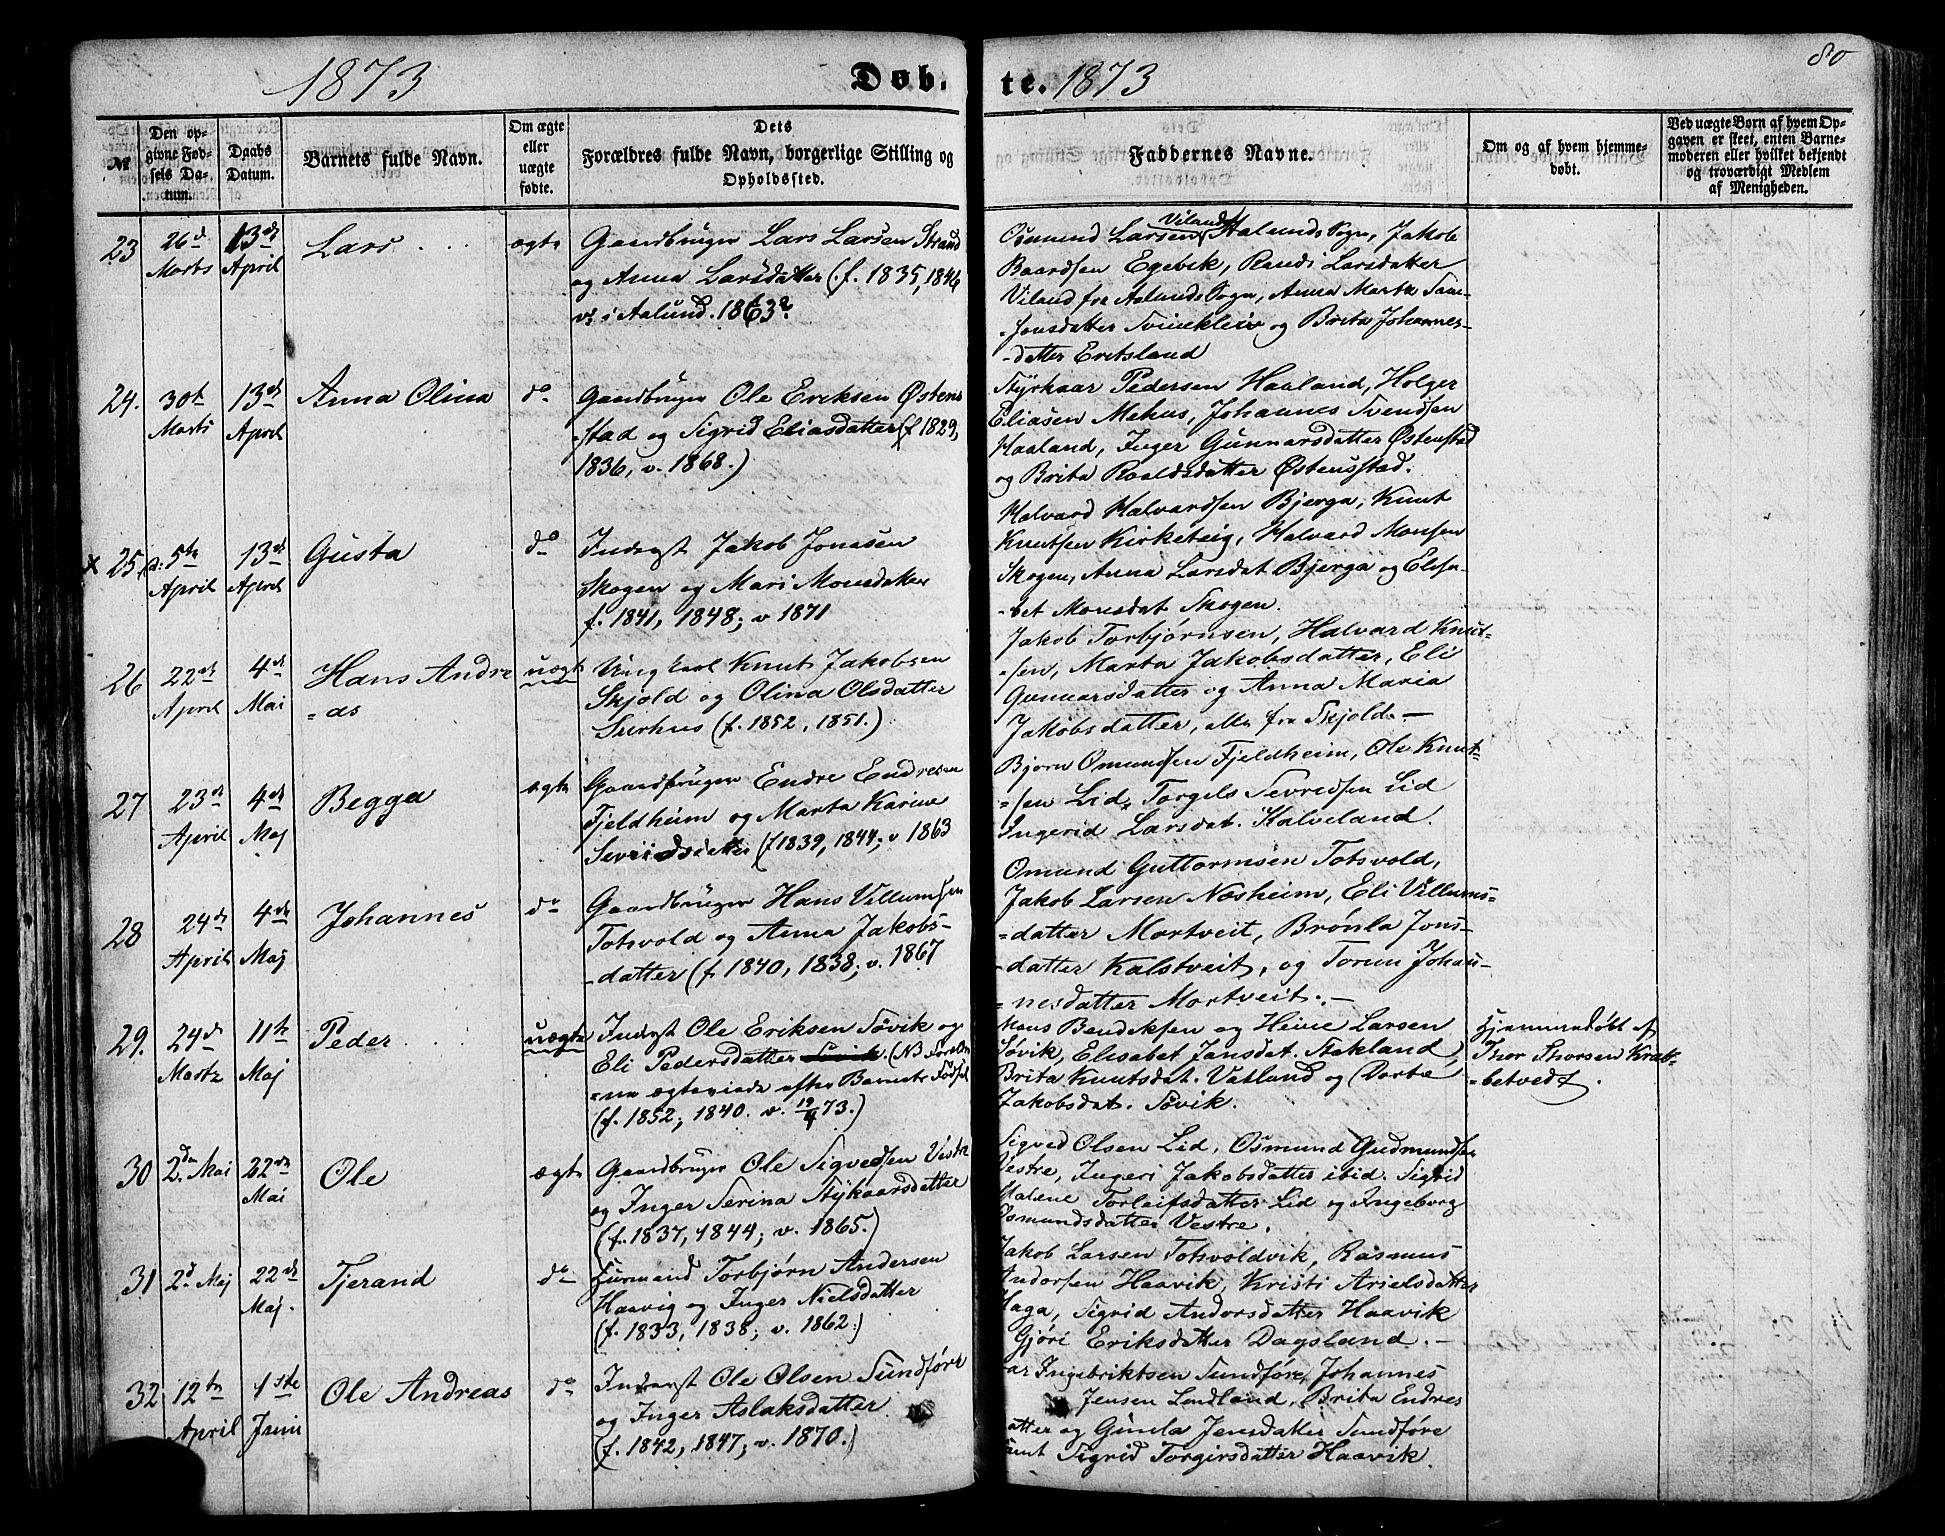 80
1873 Døb. te. 1873
№
Den op-
givne Fød-
sels Da-
tum.
Daabs
Datum.
Barnets fulde Navn.
Om ægte
eller
uægte
fødte.
Dets
Forældres fulde Navn, borgerlige Stilling og
Opholdssted.
Faddernes Navne.
Om og af hvem hjemme-
døbt.
Ved uægte Børn af hvem Op-
gaven er skeet, enten Barne-
moderen eller hvilket bekjendt
og troværdigt Medlem
af Menigheden.
23 26d Marts 13de April Lars ægte
Gaardbruger Lars Larsen Strand
og Anna Larsdatter (f. 1835, 1846
v: i Aalund. 1863?
Osmund Larsen Viland Aalunds Sogn, Jakob
Baardsen Egevik, Randi Larsdatter
Viland fra Aalunds Sogn, Anna Marta Sam-
-sonsdatter Svinekleiv og Brita Johannes-
-datter Eritsland
24. 30te Marts 13de April Anna Olina do
Gaardbruger Ole Eriksen Østens
-stad og Sigrid Eliasdatter (f 1829,
1836, v. 1868.)
Styrkaar Pedersen Haaland, Holger
Eliasen Mehus, Johannes Svendsen
Haaland, Inger Gunnarsdatter Østenstad
og Brita Roaldsdatter Østensstad.
x 25. d: 5te April 13de April Gusta do
Inderst Jakob Jonasen
Skogen og Mari Monsdatter
f. 1841, 1848; v 1871
Halvard Halvardsen Bjerga, Knut
Knutsen Kirketeig, Halvard Monsen
Skogen, Anna Larsdat Bjerga og Elisa-
-bet Monsdat Skogen.
26 22de April 4de Mai Hans Andre
=as uægte
Ung karl Knut Jakobsen
Skjold og Olina Olsdatter
Surhus (f. 1852, 1851.)
Jakob Torbjørnsen, Halvard Knut-
=sen, Marta Jakobsdatter, Eli
Gunnarsdatter og Anna Maria
Jakobsdatter, alle fra Skjold.—
27 23de April 4de Maj Begga ægte
Gaardbruger Endre Endresen
Fjeldheim og Marta Karine
Sevriedsdatter (f 1839, 1844; v 1863
Bjørn Omundsen Fjeldheim, Ole Knut-
=sen Lid, Torgels Sevredsen Lid
Ingerid Larsdat. Halveland.
28 24de April 4de Maj Johannes do
Gaardbruger Hans Villumsen
Totsvold og Anna Jakobs-
-datter (f. 1840, 1838; v. 1867
Omund Guttormsen Totsvold,
Jakob Larsen Næsheim, Eli Villums-
=datter Mortveit, Brønla Jons-
-datter Kalstveit, og Torun Johan-
=nesdatter Mortveit.—
29. 24de Marts 11te Maj Peder uægte
Inderst Ole Eriksen Søvik og
Eli Pedersdatter (NB Foræld
=re ægteviede efter Barnets Fødsel
(f. 1852; 1840. v. 19/4 73.)
Hans Bendiksen og Heine Larsen
Søvik, Elisabet Jansdat. Stakland,
Brita Knutsdat. Vatland og Dorte
Jakobsdat. Søvik.
Hjemmedøbt af
Thor Thorsen Krab-
-betvedt.
30 2den Mai 22de Mai Ole ægte
Gaardbruger Ole Sigvedsen Vestre
og Inger Serina Stykaarsdatter
(f. 1837, 1844; v. 1865.)
Sigved Olsen Lid, Osmund Gudmundsen
Vestre, Ingeri Jakobsdatter ibid. Sigrid
Malene Torleifsdatter Lid og Ingeborg
Osmundsdatter Vestre.
31 2d Maj 22de Maj. Tjerand do
Huusmand Torbjørn Andersen
Haavig og Inger Nielsdatter
(f. 1833, 1838; v. 1862.)
Jakob Larsen Totsvoldvik, Rasmus
Andorsen Haavik, Kristi Arielsdatter
Haga, Sigrid Andorsdatter Haavik
Gjøri Eriksdatter Dagsland.—
32 12te April 1ste Juni Ole Andreas do
Inderst Ole Olsen Sundføre
og Inger Aslaksdatter
(f. 1842, 1847; v. 1870.)
Ingebriktsen Sundføre, Johannes
Jensen Lindland, Brita Endres
atter og Gunla Jensdatter Sundføre
samt Sigrid Torgirsdatter Haavik.